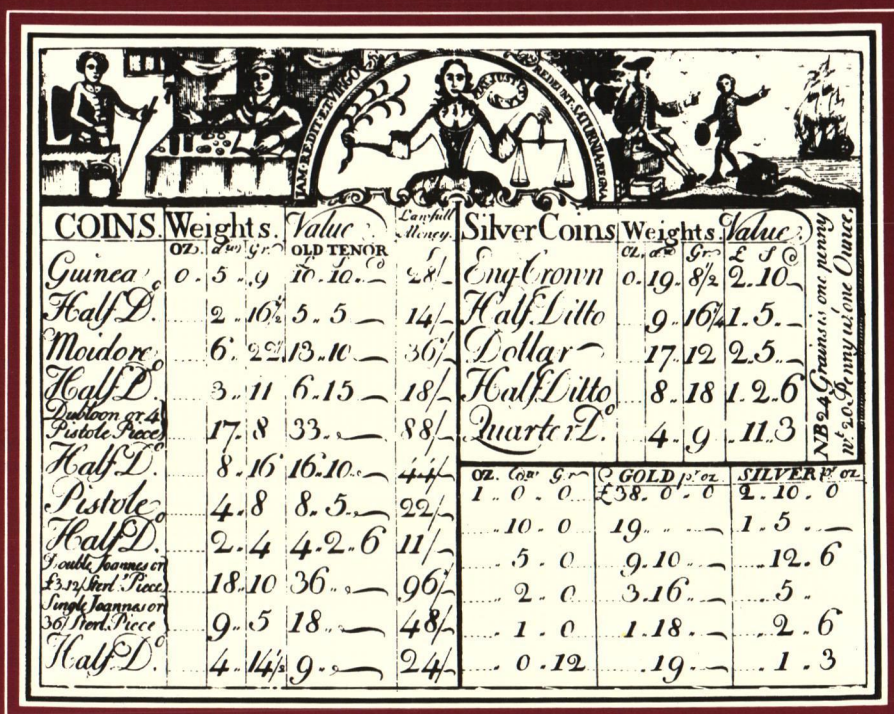 IAM REDIT ET VIRGO
REDEUNT SATURNIA REGNA
COINS. Weights. Value Lawfull Money.
OZ. dwt Gr. OLD TENOR
Guinea 0. 5 .. 9 10.. 10.. 28/
Half Do 2 .. 16½ 5.. 5 14/
Moidore 6. 13..10 36/
Half Do 3.. 11 6..15 18/
Dubloon or 4 Pistole Piece 17. 8 33.. 88/
Half Do 8..16 16..10. 44/
Pistole 4..8 8..5 22/
Half Do 2..4 4..2..6 11/
Double Joannes or £3.12/ Sterl. Piece 18.10 36.. 96/
Single Joannes or 36/ Sterl. Piece 9.. 5 18.. 48/
Half Do 4.. 14½ 9.. 24/
Silver Coins Weights Value
OZ. dwt Gr. £ S D
Eng Crown 0. 19.. 8½ 2..10
Half Ditto 9.. 1..5..
Dollar 17.. 12 2..5..
Half Ditto 8.. 18 1..2..6
Quarter Do 4.. 9 ..11..3
NB 24 Grains is one penny
wt. 20 Penny wt one Ounce.
OZ. dwt Gr GOLD pr oz SILVER pr oz
1 .. 0 .. 0 £38.. 0 .. 0 2.. 10.. 0
10 .. 0 19.. 1.. 5 ..
5 .. 0 9..10 ..12..6
2 .. 0 3..16 ..5..
1 .. 0 1..18.. ..2..6
0 ..12 ..19.. ..1..3